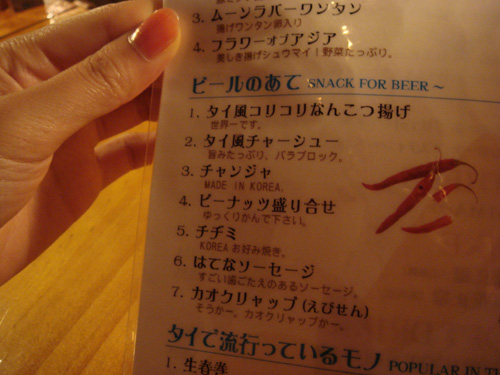 3. ムーンラバーワンタン
揚げワンタン餅入り
4. フラワーオブアジア
美しき揚げシュウマイ！野菜たっぷり。
ビールのあて SNACK FOR BEER ~
1. タイ風コリコリなんこつ揚げ
世界一です。
2. タイ風チャーシュー
旨みたっぷり、バラブロック。
3. チャンジャ
MADE IN KOREA.
4. ピーナッツ盛り合せ
ゆっくりかんで下さい。
5. チヂミ
KOREAお好み焼き。
6. はてなソーセージ
すごい歯ごたえのあるソーセージ。
7. カオクリャップ (えびせん)
そうかー、カオクリャップかー。
タイで流行っているモノ POPULAR IN T
1. 生春巻